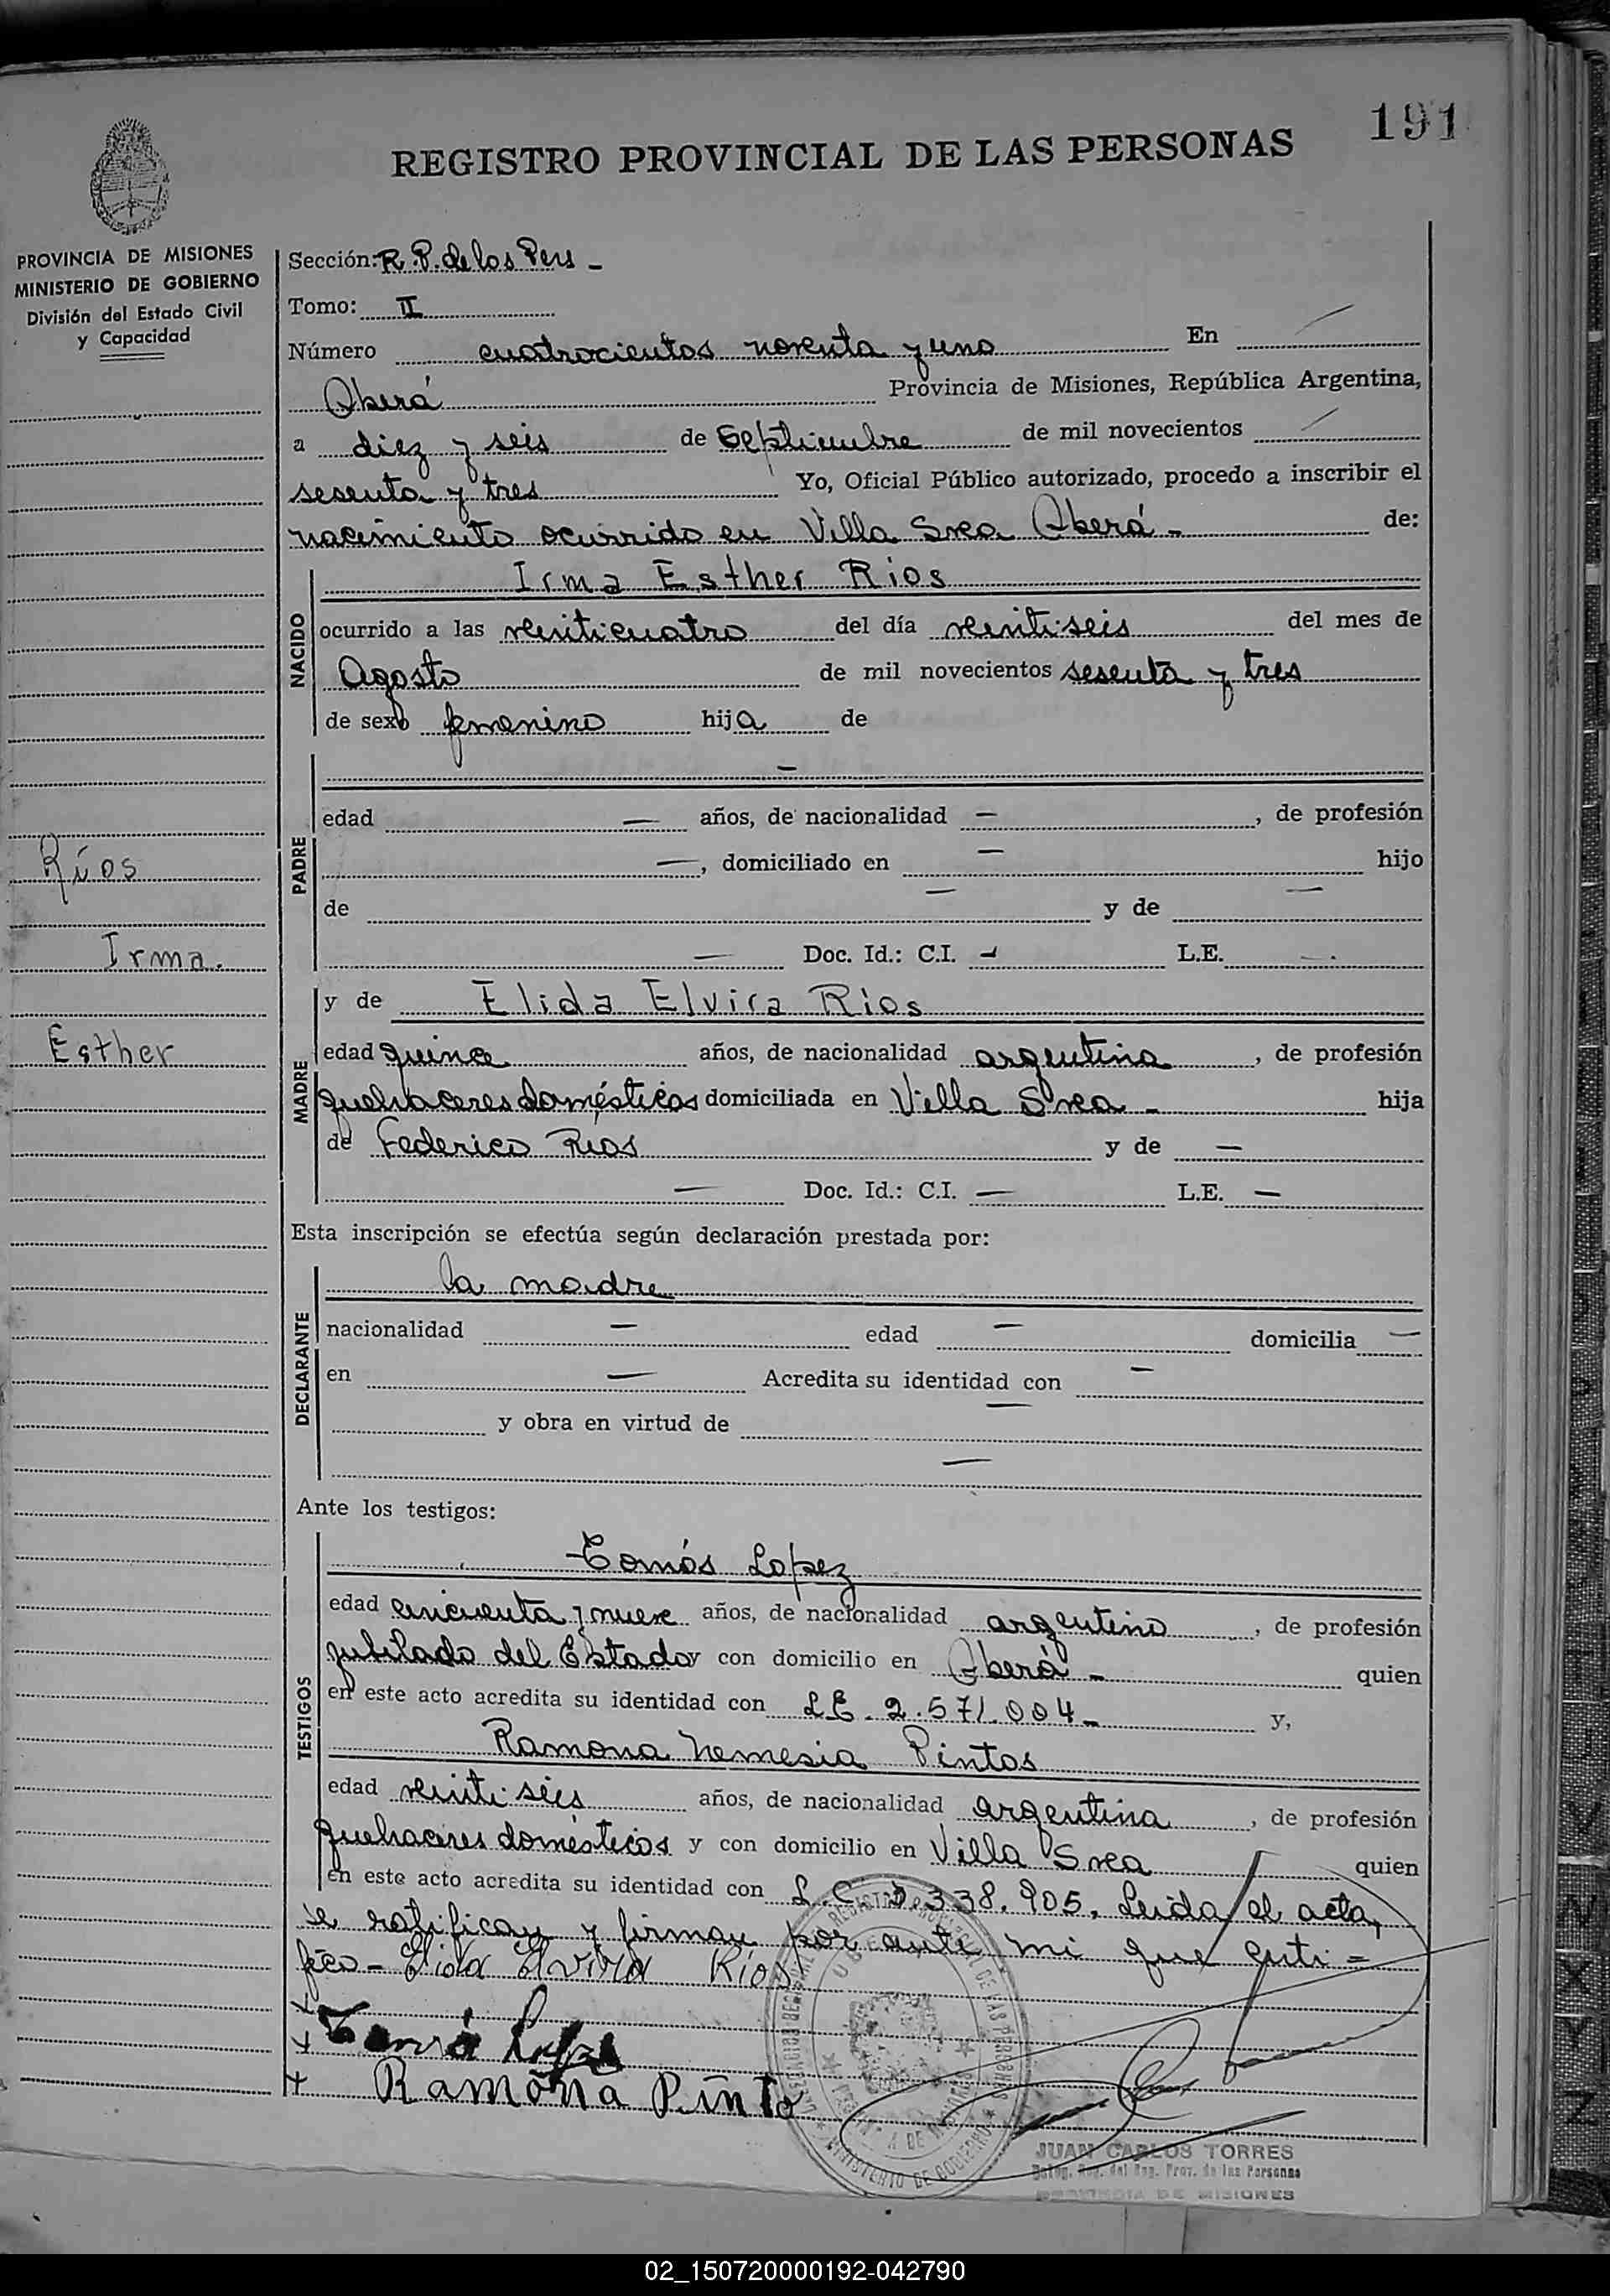 191
REGISTRO PROVINCIAL DE LAS PERSONAS
PROVINCIA DE MISIONES
MINISTERIO DE GOBIERNO
División del Estado Civil
y Capacidad
Ríos
Irma.
Esther
Sección: R. P. de los Pers -
Tomo: II
Número cuatrocientos noventa y uno En
Oberá Provincia de Misiones, República Argentina,
a diez y seis de Septiembre de mil novecientos
sesenta y tres Yo, Oficial Público autorizado, procedo a inscribir el
nacimiento ocurrido en Villa Svea Oberá - de:
NACIDO
Irma Esther Rios
ocurrido a las veinticuatro del día veintiseis del mes de
Agosto de mil novecientos sesenta y tres
de sexo femenino hija de
PADRE
-
edad - años, de nacionalidad - , de profesión
- , domiciliado en - hijo
de - y de -
- Doc. Id.: C.I. - L.E. -
MADRE
y de Elida Elvira Rios
edad quince años, de nacionalidad argentina , de profesión
quehaceres domésticos domiciliada en Villa Svea - hija
de Federico Rios y de -
- Doc. Id.: C.I. - L.E. -
Esta inscripción se efectúa según declaración prestada por:
DECLARANTE
la madre
nacionalidad - edad - domicilia -
en - Acredita su identidad con -
y obra en virtud de -
-
Ante los testigos:
TESTIGOS
Tomás Lopez
edad cincuenta y nueve años, de nacionalidad argentino , de profesión
jubilado del Estado y con domicilio en Oberá - quien
en este acto acredita su identidad con L E. 2.571.004- y,
Ramona Nemesia Pintos
edad veinti seis años, de nacionalidad argentina , de profesión
quehaceres domésticos y con domicilio en Villa Svea quien
en este acto acredita su identidad con L. C. 338.905. Leida el acta,
se ratifican y firman por ante mi que certi =
fico - Elida Elvira Rios
Tomás Lopez
Ramona Pinto
MINISTERIO DE GOBIERNO
JUAN CARLOS TORRES
del Reg. Prov. de las Personas
PROVINCIA DE MISIONES
02_150720000192-042790